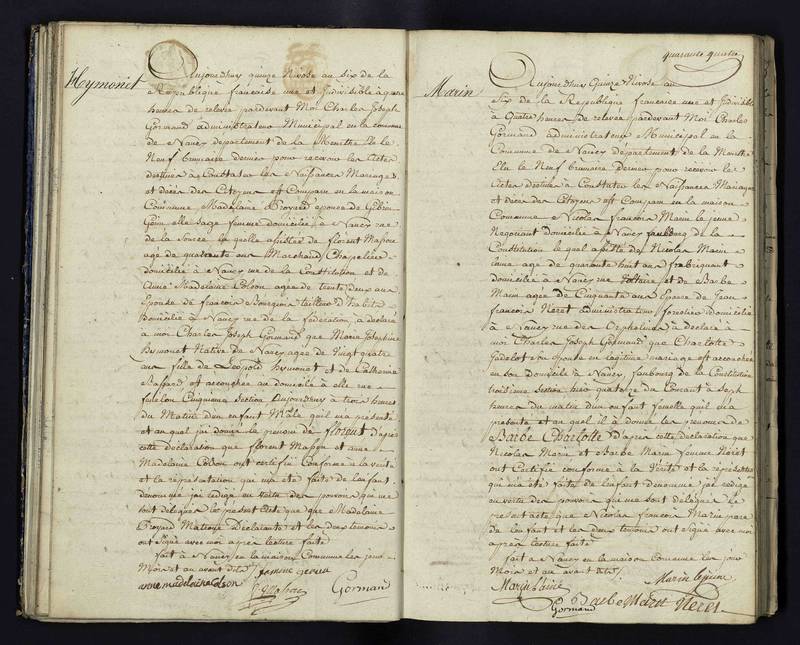 Hymonet
Aujourdhuy quinze Nivose au six de la
République francaise une et Indivisible à quatre
heures de relevée pardevant Moi Charles Joseph
Gormand administrateur Municipal en la commune
de Nancy département de la Meurthe Elu le
Neuf brumaire dernier pour recevoir les Actes
destinés à Constater les Naissances Mariages
et décès des Citoyens est Comparu en la maison
Commune Madelaine Broyard épouse de
elle sage femme domiciliée à Nancy rue
de la Source laquelle assistée de florent
agé de quarante ans Marchand Chapelier
domicilié à Nancy rue de la Constitution et de
Anne Madelaine Colson agée de trente deux ans
Epouse de francois Bourgoin tailleur d'habits
Domicilié à Nancy rue de la fédération, a déclaré
à moi Charles Joseph Gormand que Marie Josephine
Hymonet Native de Nancy agée de Vingt quatre
ans fille de Leopold hymonet et de Catherine
est accouchée au domicile à elle rue
fénélon Cinquieme Section Aujourdhuy à trois heures
du Matin d'un enfant Mâle qu'il m'a présenté
et auquel j'ai donné le prenom de florent d'après
cette déclaration que florent et anne
Madelaine Colson ont certifié Conforme a la verité
et la représentation qui m'a été faite de l'enfant
denommé j'ai redigé en vertu des pouvoirs qui me
sont delegués le présent acte que Madelaine
Broyard Matrone Déclarante et les deux temoins
ont Signé avec moi après lecture faite
fait à Nancy en la maison Commune les jour
Mois et an avant dits
femme
anne madelaine Colson
Gormand
quarante quatre
Marin
Aujourdhuy Quinze Nivose au
Six de la Republique francaise une et Indivisible
à Quatre heures de relevée pardevant Moi Charles
Gormand administrateur Municipal en la
Commune de Nancy département de la Meurthe
Elu le Neuf brumaire Dernier pour recevoir les
Actes destinés à Constater les Naissances Mariages
et décès des Citoyens est Comparu en la maison
Commune Nicolas francois Marin le jeune
Négociant Domicilié à Nancy faubourg de la
Constitution lequel assisté de Nicolas Marin
l'ainé agé de quarante huit ans fabriquant
domicilié à Nancy rue Voltaire et de Barbe
Marin agée de Cinquante ans Epouse de Jean
francois Néret administrateur forestier domicilié
à Nancy rue des Orphelins à déclaré à
moi Charles Joseph Gormand que Charlotte
Gadelot son épouse en legitime mariage est accouchée
en son domicile à Nancy, faubourg de la Constitution
troisieme section hier quatorze du Courant à Sept
heures du matin d'un enfant femelle qu'il m'a
présenté et auquel il à donné les prenoms de
Barbe Charlotte d'après cette déclaration que
Nicolas Marin et Barbe Marin femme Néret
ont Certifié conforme à la Verité et la représentation
qui m'a été faite de l'enfant denommé j'ai redigé
en vertu des pouvoirs qui me sont delegués le
présent acte que Nicolas francois Marin pere
de l'enfant et les deux temoins ont signé avec moi
après lecture faite
fait à Nancy en la maison Commune les jour
Mois et an avant dits
Marin lainé
Marin lejeune
Gormand
Barbe Marin Neret